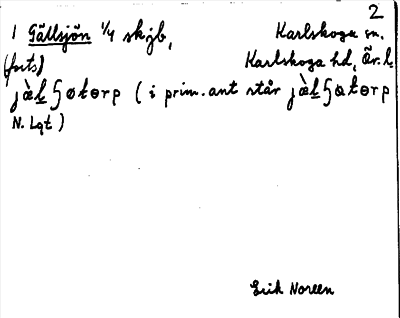 2
1 Gällsjön ¼ skjb, Karlskoga sn.
(forts) Karlskoga hd, Ör. l.
jæ̀l̲ʃøtɵrp (i prim. ant står jæ̀l̲ʃatɵrp
N. Lgt)
Erik Noreen